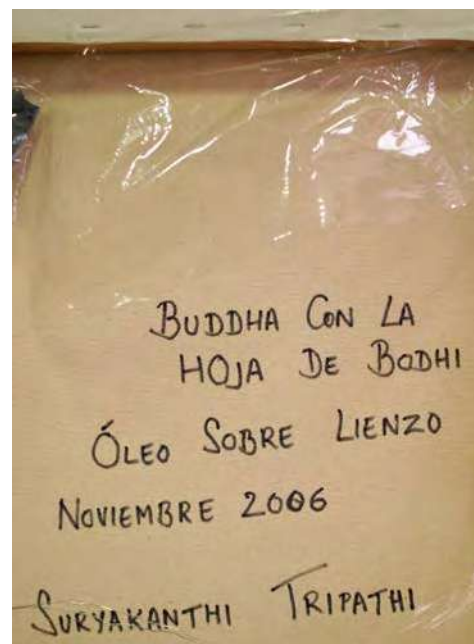 BUDDHA CON LA
HOJA DE BODHI
ÓLEO SOBRE LIENZO
NOVIEMBRE 2006
SURYAKANTHI TRIPATHI